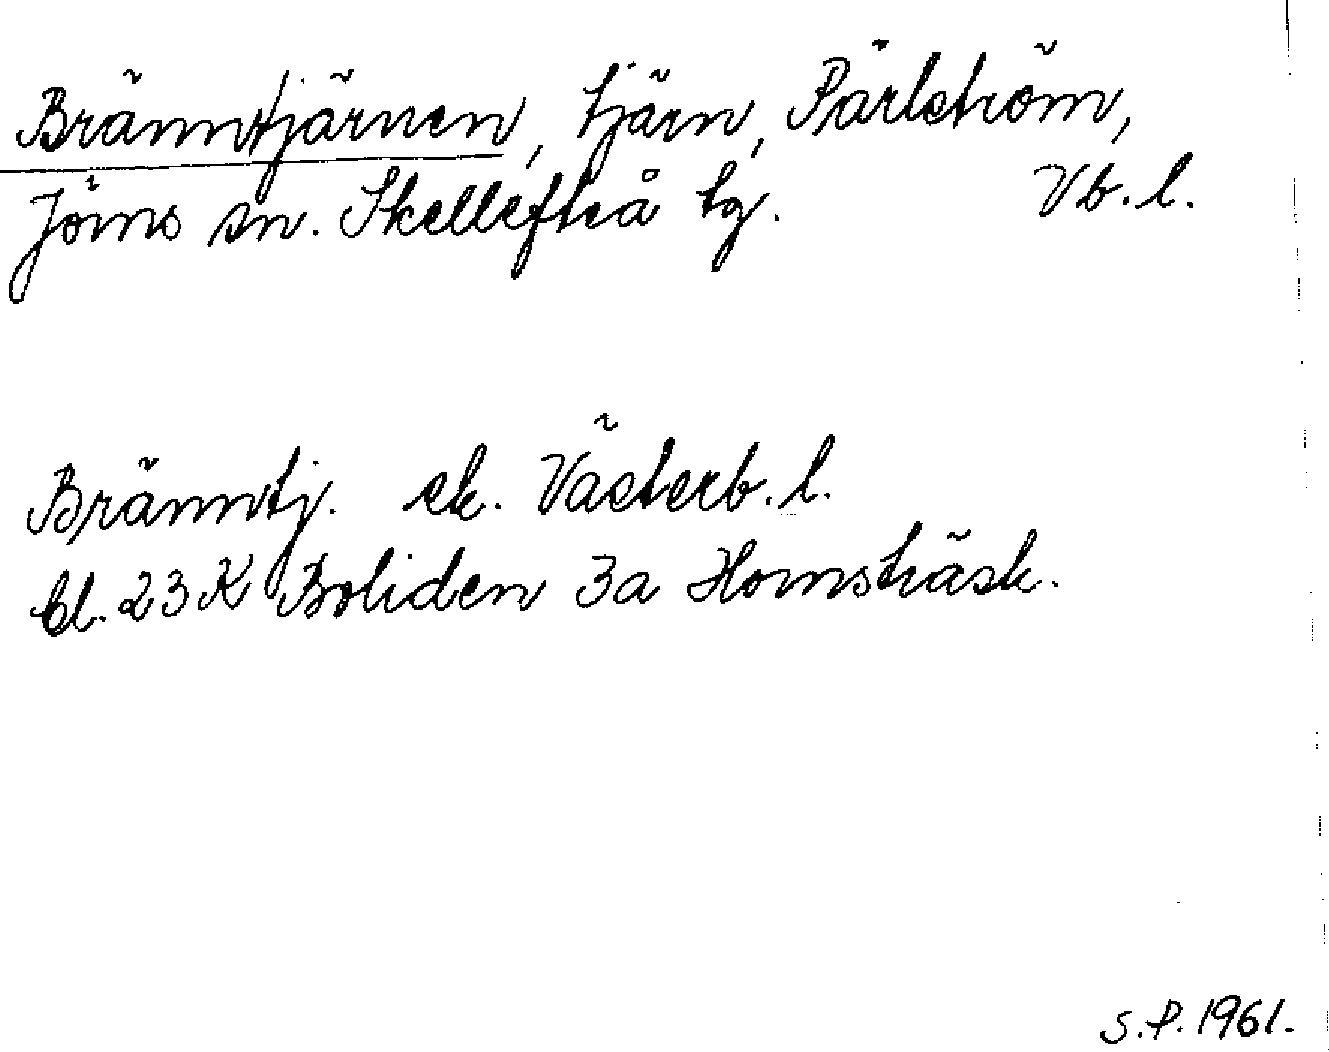 Bränntjärnen, tjärn, Pärlström,
Jörns sn. Skellefteå tg. Vb. l.
Bränntj. ek. Västerb. l.
bl. 23 K Boliden 3a Hornsträsk.
S.P. 1961.